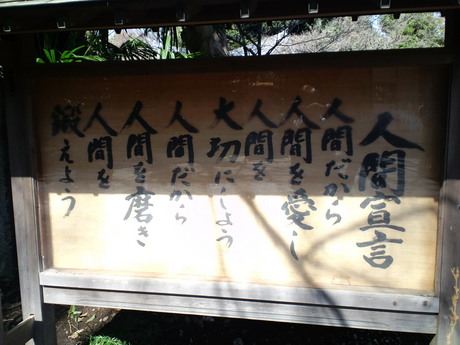 人間宣言
人間だから
人間を愛し
人間を
大切にしよう
人間だから
人間を磨き
人間を
鍛えよう